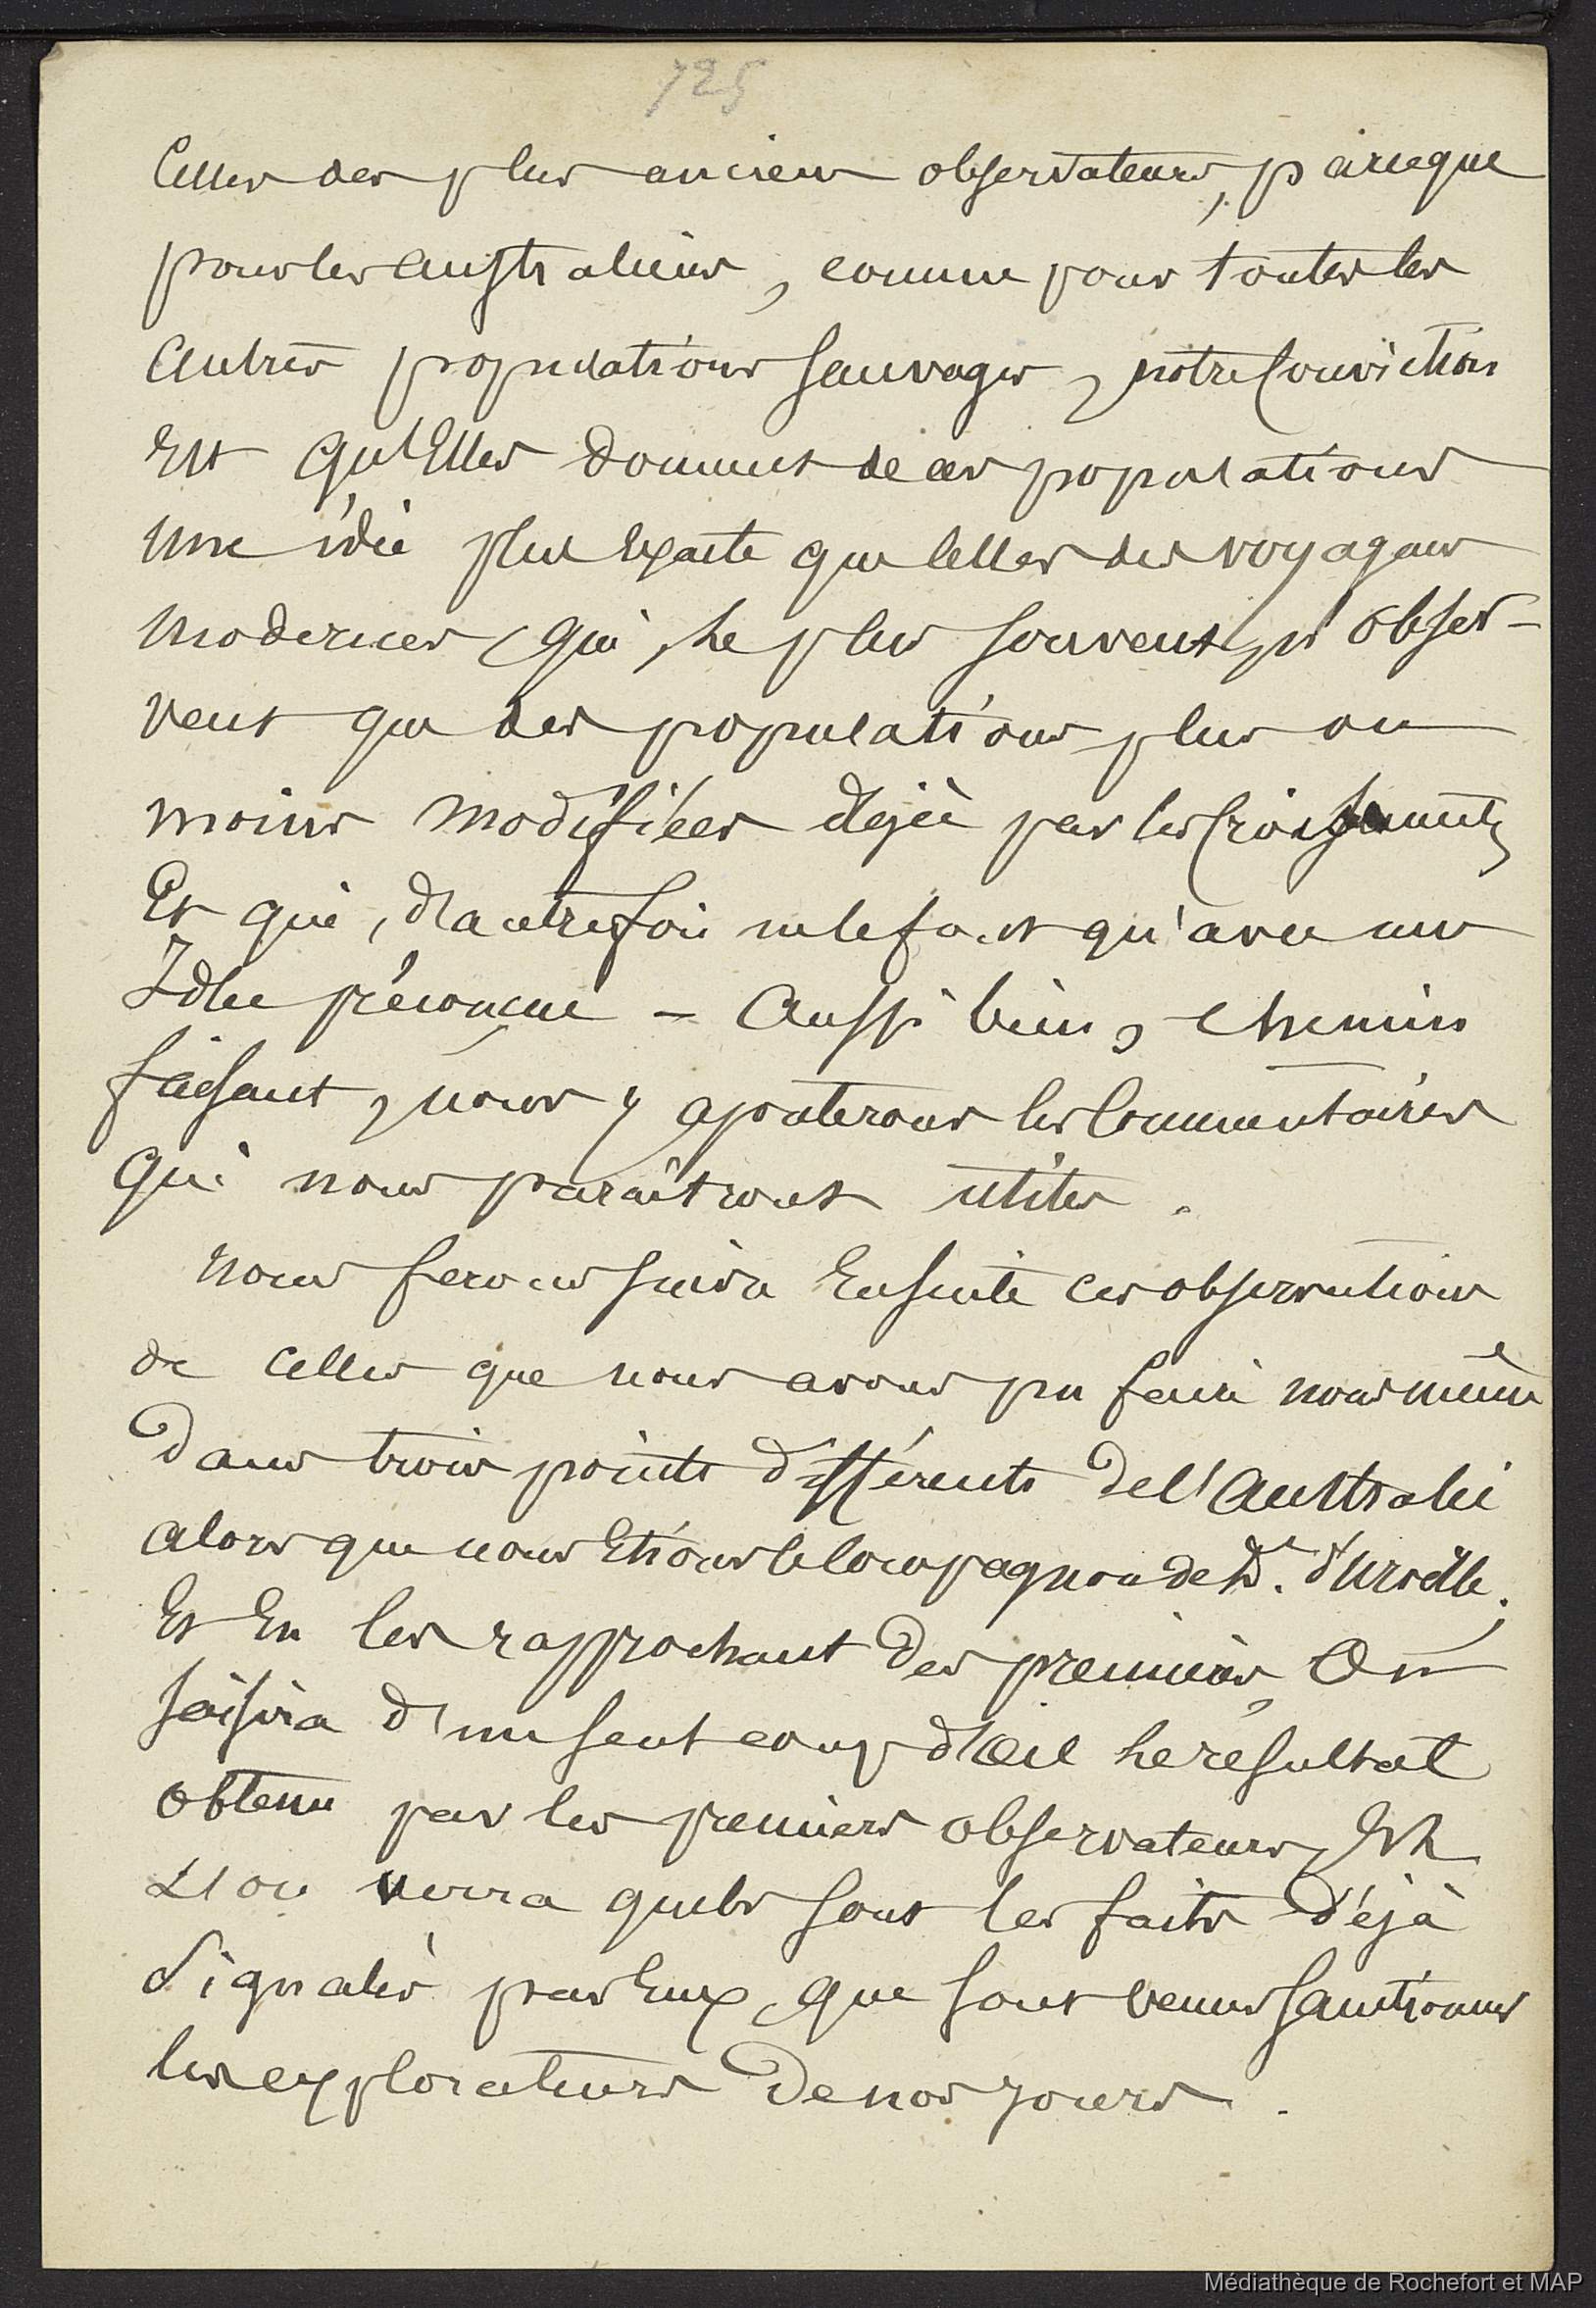 725
celles des plus anciens observateurs, parceque
pour les australiens, comme pour toutes les
autres populations sauvages, notre conviction
est qu'elles donnent de ces populations
une idée plus exacte que celles des voyageurs
modernes, qui, le plus souvent, n'obser-
vent que des populations plus ou
moins modifiées déjà par les croisements
et qui, d'autrefois ne le font qu'avec une
idée préconçue - Aussi bien, chemin
faisant, nous y ajouterons les commentaires
qui nous paraîtront utiles.
nous ferons suivre ensuite ces observations
de celles que nous avons pu faire nous même
dans trois points différents de l'Australie
alors que nous étions le compagnon de D. d'Urville.
Et en les rapprochant des premières, on
saisira d'un seul coup d'oeil le résultat
obtenu par les premiers observateurs, et
l'on verra quels sont les faits déjà
signalés par eux, que sont venus sanctionner
les explorateurs de nos jours.
Médiathèque de Rochefort et MAP